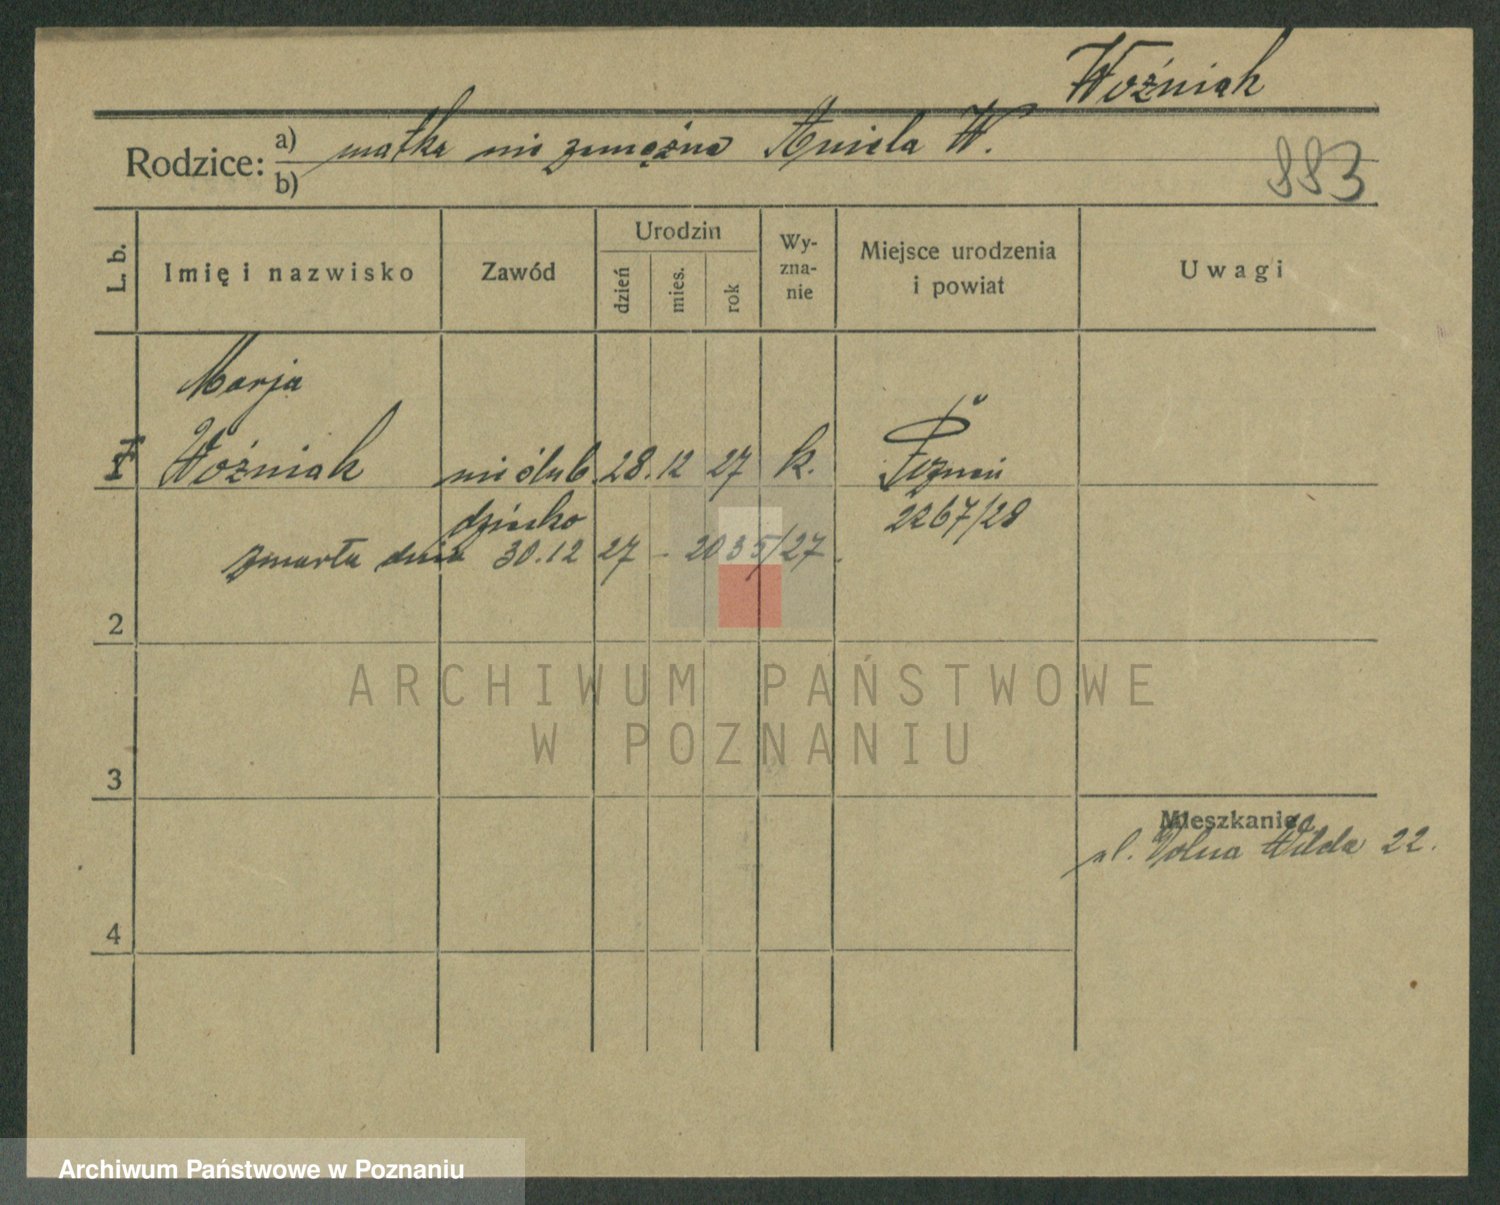 Woźniak
Rodzice: a) matka nie zamężna Aniela W.
b)
883
L. b.
Imię i nazwisko
Zawód
Urodzin
dzień
mies.
rok
Wy-
zna-
nie
Miejsce urodzenia
i powiat
Uwagi
Marja
1 Woźniak nie ślub. 28. 12 27 k. Poznań
dziecko 2267/28
zmarła dnia 30.12 27 - 2035/27.
2
3
4
Mieszkanie
ul. Wolna Wilda 22.
ARCHIWUM PAŃSTWOWE
W POZNANIU
Archiwum Państwowe w Poznaniu